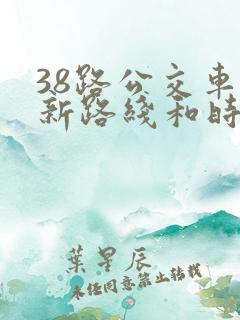 38路公交车
新路线和时
叶星辰
未经同意禁止转载